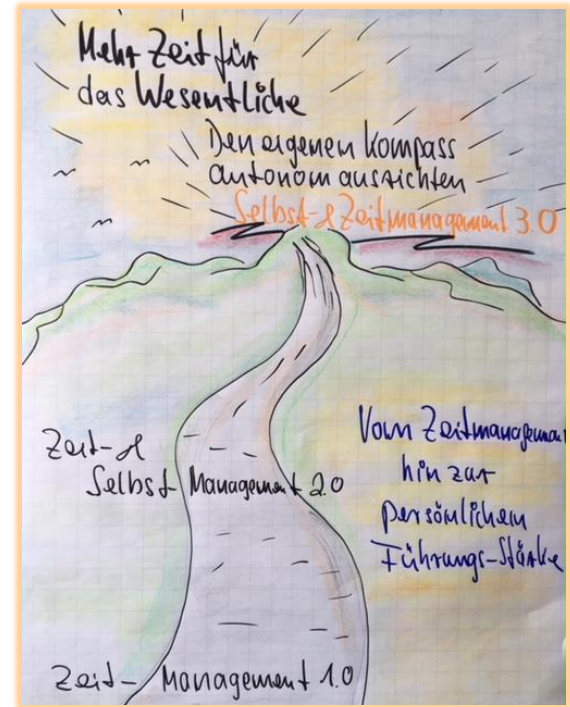 Mehr Zeit für
das Wesentliche
Den eigenen Kompass
autonom ausrichten
Selbst- & Zeitmanagement 3.0
Zeit- &
Selbst-Management 2.0
Vom Zeitmanagement
hin zur
persönlichem
Führungs-Stärke
Zeit-Management 1.0